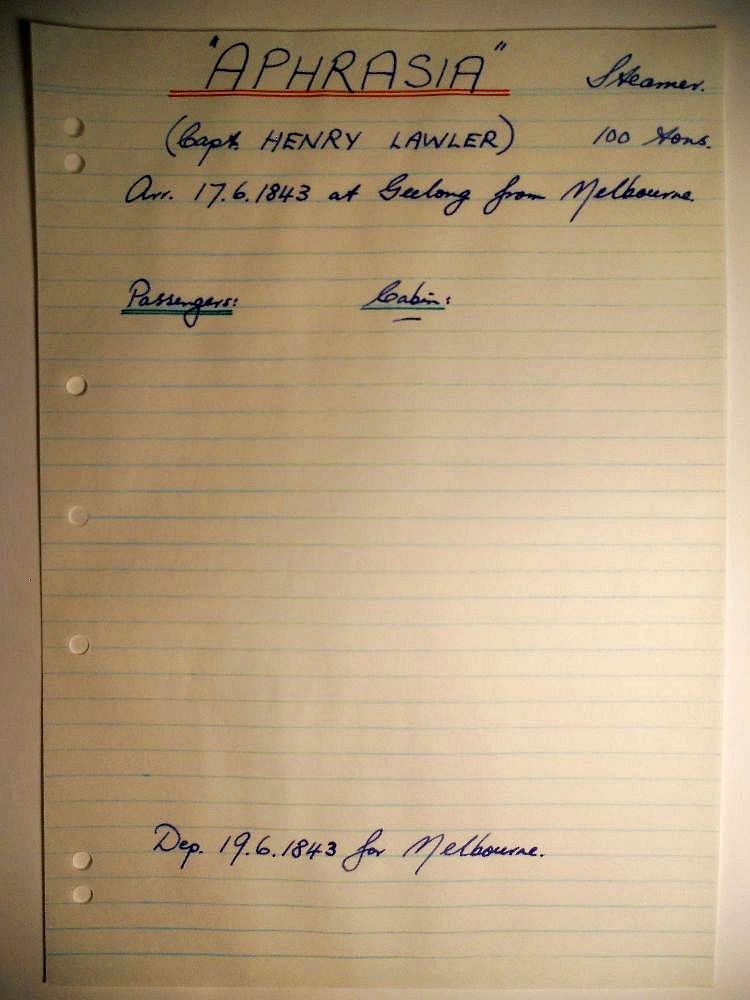 "APHRASIA" Steamer.
(Capt. HENRY LAWLER) 100 tons.
Arr. 17.6.1843 at Geelong from Melbourne.
Passengers: Cabin:
Dep. 19.6.1843 for Melbourne.